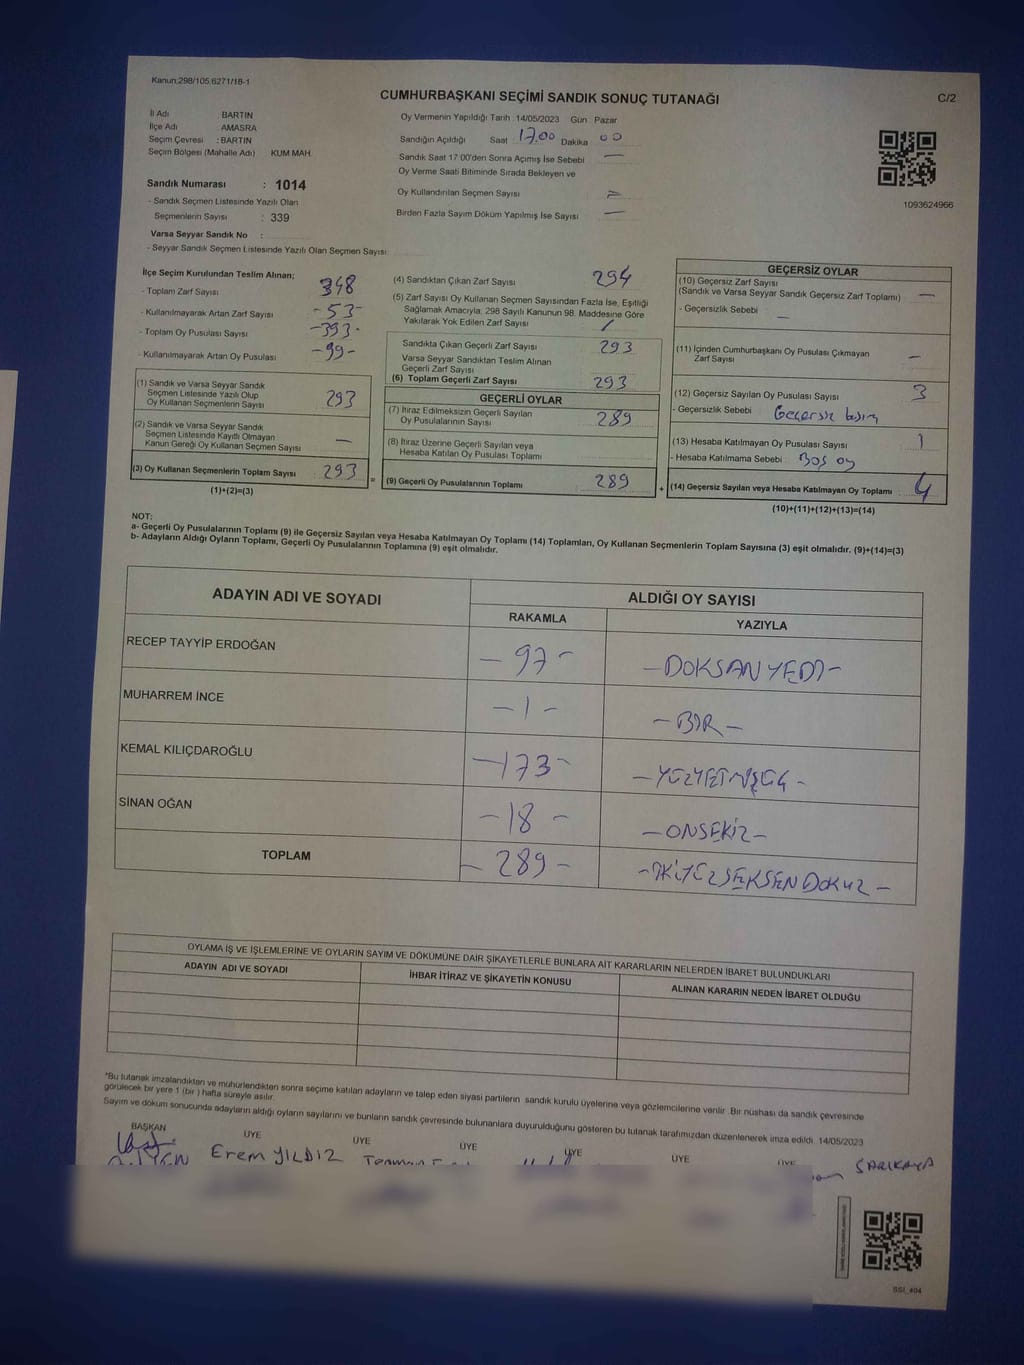 Kanun:298/105,6271/18-1
CUMHURBAŞKANI SEÇİMİ SANDIK SONUÇ TUTANAĞI
C/2
İl Adı BARTIN
İlçe Adı AMASRA
Seçim Çevresi : BARTIN
Seçim Bölgesi (Mahalle Adı) KUM MAH.
Oy Vermenin Yapıldığı Tarih :14/05/2023 Gün : Pazar
Sandığın Açıldığı Saat 17.00 Dakika 00
Sandık Saat 17:00'den Sonra Açımış İse Sebebi —
Oy Verme Saati Bitiminde Sırada Bekleyen ve
Oy Kullandırılan Seçmen Sayısı
Birden Fazla Sayım Döküm Yapılmış İse Sayısı —
1093624966
Sandık Numarası : 1014
- Sandık Seçmen Listesinde Yazılı Olan
Seçmenlerin Sayısı : 339
Varsa Seyyar Sandık No :
- Seyyar Sandık Seçmen Listesinde Yazılı Olan Seçmen Sayısı:
İlçe Seçim Kurulundan Teslim Alınan;
- Toplam Zarf Sayısı 348
- Kullanılmayarak Artan Zarf Sayısı -53-
- Toplam Oy Pusulası Sayısı -393-
- Kullanılmayarak Artan Oy Pusulası -99-
(1) Sandık ve Varsa Seyyar Sandık
Seçmen Listesinde Yazılı Olup
Oy Kullanan Seçmenlerin Sayısı 293
(2) Sandık ve Varsa Seyyar Sandık
Seçmen Listesinde Kayıtlı Olmayan
Kanun Gereği Oy Kullanan Seçmen Sayısı —
(3) Oy Kullanan Seçmenlerin Toplam Sayısı 293
(1)+(2)=(3)
=
(4) Sandıktan Çıkan Zarf Sayısı 294
(5) Zarf Sayısı Oy Kullanan Seçmen Sayısından Fazla İse, Eşitliği
Sağlamak Amacıyla; 298 Sayılı Kanunun 98. Maddesine Göre
Yakılarak Yok Edilen Zarf Sayısı
Sandıkta Çıkan Geçerli Zarf Sayısı 293
Varsa Seyyar Sandıktan Teslim Alınan
Geçerli Zarf Sayısı
(6) Toplam Geçerli Zarf Sayısı 293
GEÇERLİ OYLAR
(7) İtiraz Edilmeksizin Geçerli Sayılan
Oy Pusulalarının Sayısı 289
(8) İtiraz Üzerine Geçerli Sayılan veya
Hesaba Katılan Oy Pusulası Toplamı
(9) Geçerli Oy Pusulalarının Toplamı 289
+
GEÇERSİZ OYLAR
(10) Geçersiz Zarf Sayısı
(Sandık ve Varsa Seyyar Sandık Geçersiz Zarf Toplamı) —
- Geçersizlik Sebebi : —
(11) İçinden Cumhurbaşkanı Oy Pusulası Çıkmayan
Zarf Sayısı —
(12) Geçersiz Sayılan Oy Pusulası Sayısı 3
- Geçersizlik Sebebi : Geçersiz basım
(13) Hesaba Katılmayan Oy Pusulası Sayısı 1
- Hesaba Katılmama Sebebi : Boş oy
(14) Geçersiz Sayılan veya Hesaba Katılmayan Oy Toplamı 4
(10)+(11)+(12)+(13)=(14)
NOT:
a- Geçerli Oy Pusulalarının Toplamı (9) ile Geçersiz Sayılan veya Hesaba Katılmayan Oy Toplamı (14) Toplamları, Oy Kullanan Seçmenlerin Toplam Sayısına (3) eşit olmalıdır. (9)+(14)=(3)
b- Adayların Aldığı Oyların Toplamı, Geçerli Oy Pusulalarının Toplamına (9) eşit olmalıdır.
ADAYIN ADI VE SOYADI ALDIĞI OY SAYISI
RAKAMLA YAZIYLA
RECEP TAYYİP ERDOĞAN - 97 - - DOKSAN YEDİ -
MUHARREM İNCE - 1 - - BİR -
KEMAL KILIÇDAROĞLU - 173 - - YÜZYETMİŞÜÇ -
SİNAN OĞAN - 18 - - ONSEKİZ -
TOPLAM - 289 - - İKİYÜZSEKSENDOKUZ -
OYLAMA İŞ VE İŞLEMLERİNE VE OYLARIN SAYIM VE DÖKÜMÜNE DAİR ŞİKAYETLERLE BUNLARA AİT KARARLARIN NELERDEN İBARET BULUNDUKLARI
ADAYIN ADI VE SOYADI İHBAR İTİRAZ VE ŞİKAYETİN KONUSU ALINAN KARARIN NEDEN İBARET OLDUĞU
*Bu tutanak imzalandıktan ve mühürlendikten sonra seçime katılan adayların ve talep eden siyasi partilerin sandık kurulu üyelerine veya gözlemcilerine verilir. Bir nüshası da sandık çevresinde
görülecek bir yere 1 (bir) hafta süreyle asılır.
Sayım ve döküm sonucunda adayların aldığı oyların sayılarını ve bunların sandık çevresinde bulunanlara duyurulduğunu gösteren bu tutanak tarafımızdan düzenlenerek imza edildi. 14/05/2023
BAŞKAN ÜYE ÜYE ÜYE ÜYE ÜYE ÜYE
Erem YILDIZ
SARIKAYA
BSI_404